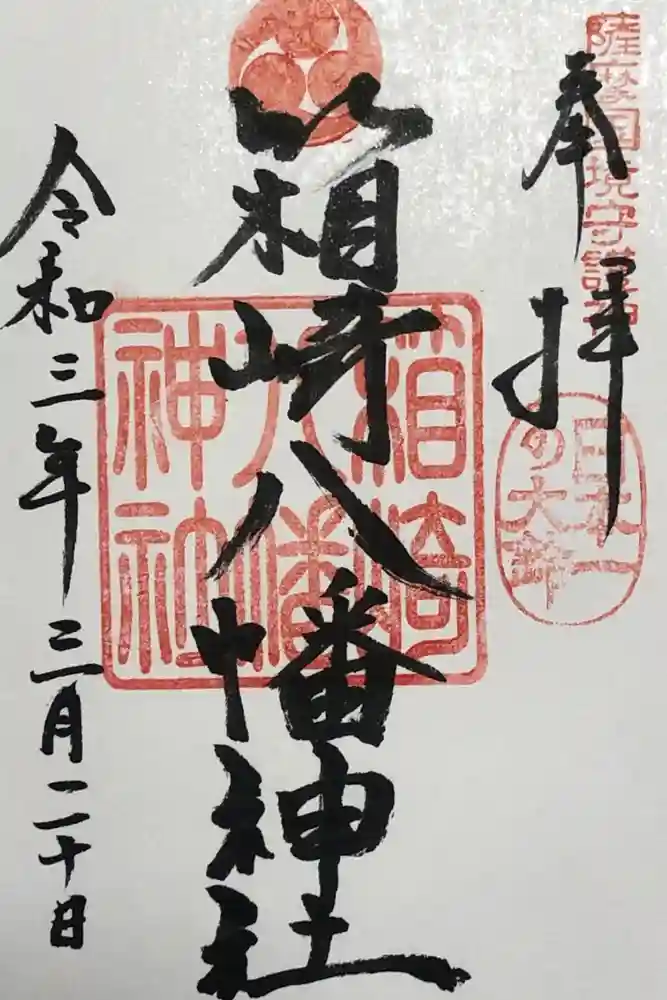 薩摩国境守護神
奉拝
日本一
の大鈴
箱崎八幡神社
箱崎
八幡
神社
令和三年三月二十日